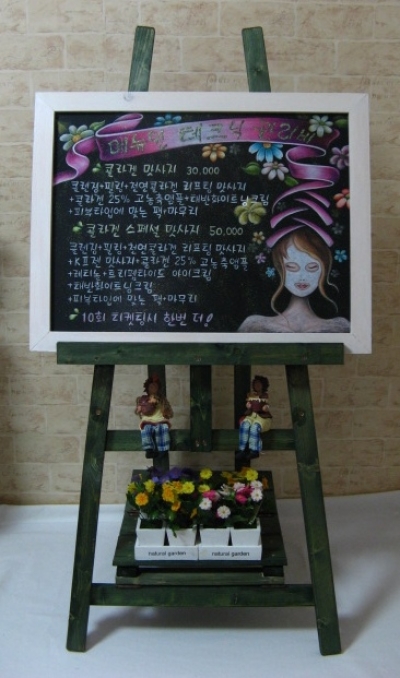 메뉴얼 테크닉 관리실
콜라겐 맛사지 30,000
클렌징+필링+천연콜라겐 리프팅 맛사지
+콜라겐 25% 고농축앰플+태반화이트닝크림
+피부타입에 맞는 팩+마무리
콜라겐 스페셜 맛사지 50,000
클렌징+필링+천연콜라겐 리프팅 맛사지
+K표젼 맛사지+콜라겐 25% 고농축앰플
+레티놀+트리펩타이드 아이크림
+태반화이트닝크림
+피부타입에 맞는 팩+마무리
10회 티켓팅시 한번 더!
natural garden
natural garden